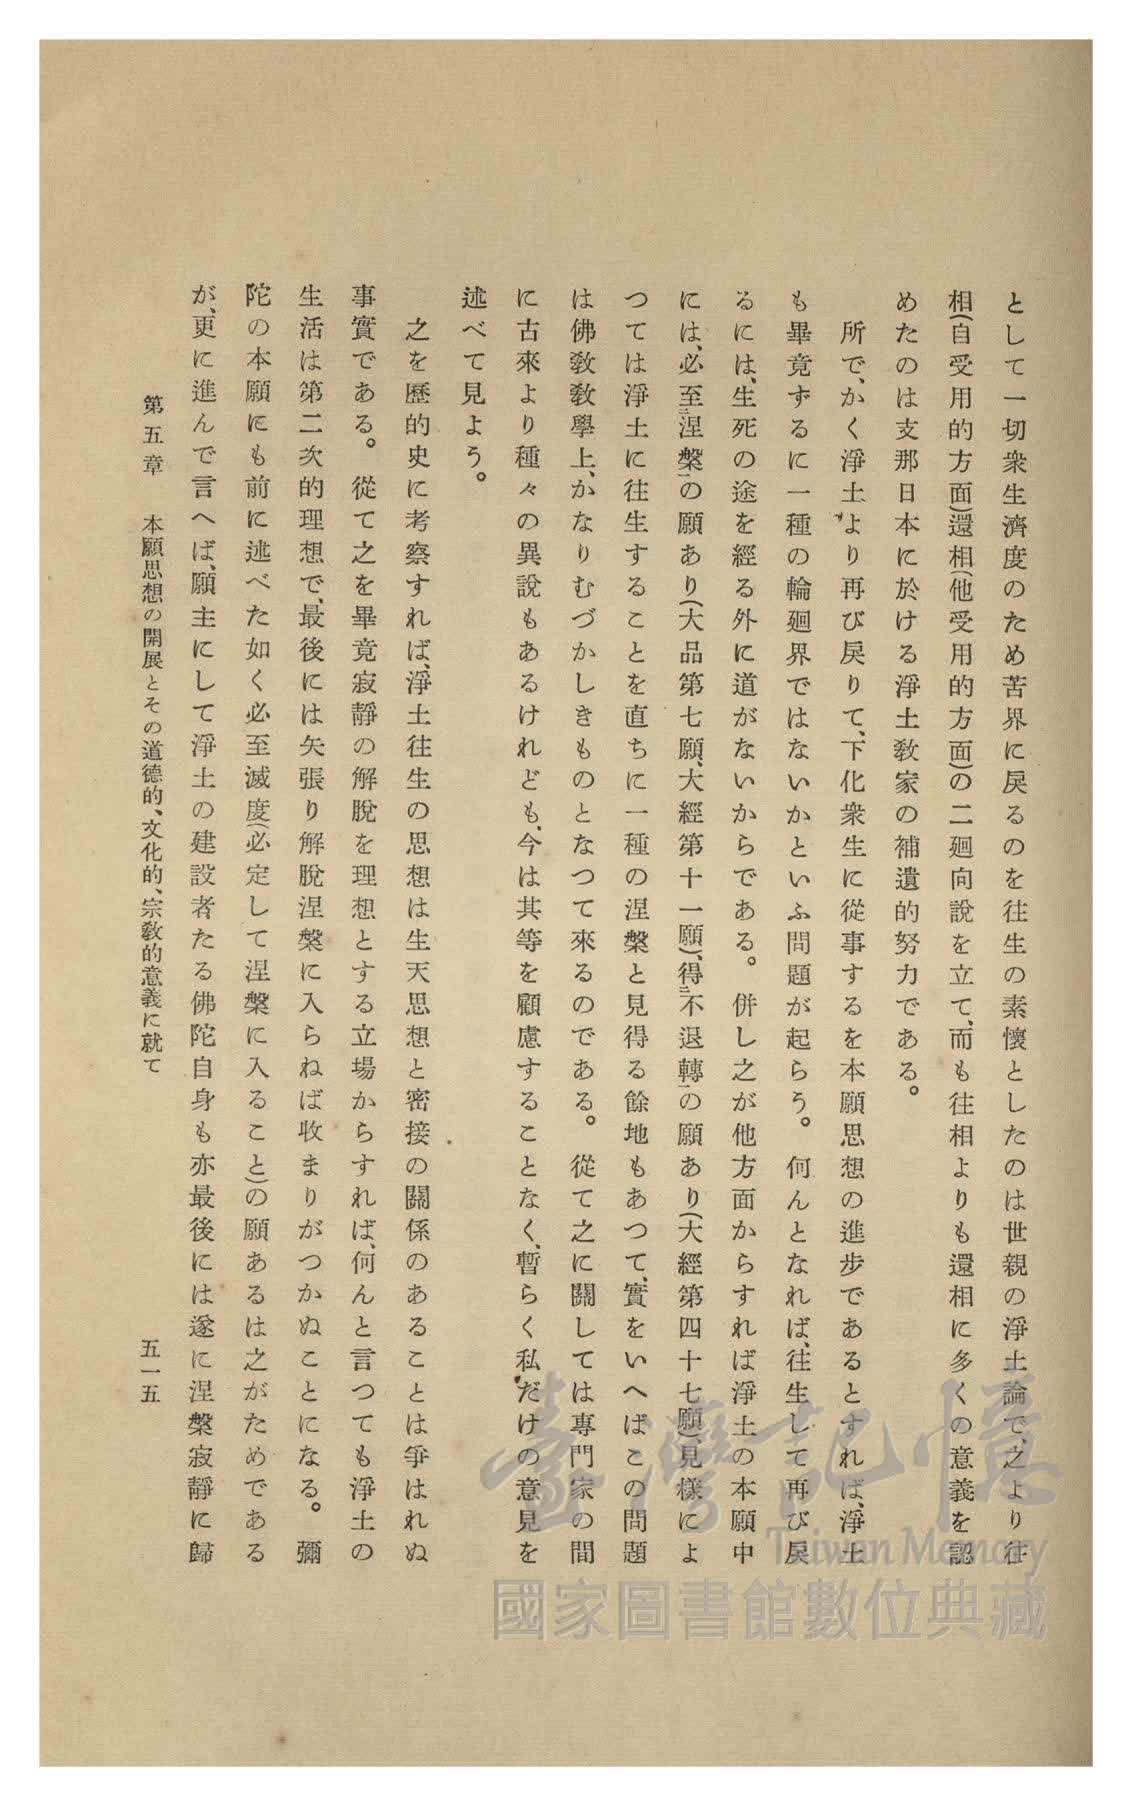 として一切衆生濟度のため苦界に戻るのを往生の素懷としたのは世親の淨土論で、之より往
相(自受用的方面)還相(他受用的方面)の二廻向說を立て、而も往相よりも還相に多くの意義を認
めたのは支那日本に於ける淨土敎家の補遺的努力である。
所で、かく淨土より再び戻りて、下化衆生に從事するを本願思想の進步であるとすれば、淨土
も畢竟ずるに一種の輪廻界ではないかといふ問題が起らう。何んとなれば、往生して再び戻
るには、生死の途を經る外に道がないからである。併し之が他方面からすれば淨土の本願中
には、必至二涅槃一の願あり(大品第七願、大經第十一願)、得二不退轉一の願あり(大經第四十七願)、見樣によ
つては淨土に往生することを直ちに一種の涅槃と見得る餘地もあつて、實をいへばこの問題
は佛敎敎學上、かなりむづかしきものとなつて來るのである。從て之に關しては專門家の間
に古來より種々の異說もあるけれども、今は其等を顧慮することなく、暫らく私だけの意見を
述べて見よう。
之を歷的史に考察すれば、淨土往生の思想は生天思想と密接の關係のあることは爭はれぬ
事實である。從て之を畢竟寂靜の解脫を理想とする立場からすれば、何んと言つても淨土の
生活は第二次的理想で、最後には矢張り解脫涅槃に入らねば收まりがつかぬことになる。彌
陀の本願にも前に述べた如く必至滅度(必定して涅槃に入ること)の願あるは之がためである
が、更に進んで言へば、願主にして淨土の建設者たる佛陀自身も亦最後には遂に涅槃寂靜に歸
第五章 本願思想の開展とその道德的、文化的、宗敎的意義に就て 五一五
臺灣記憶
Taiwan Memory
國家圖書館數位典藏